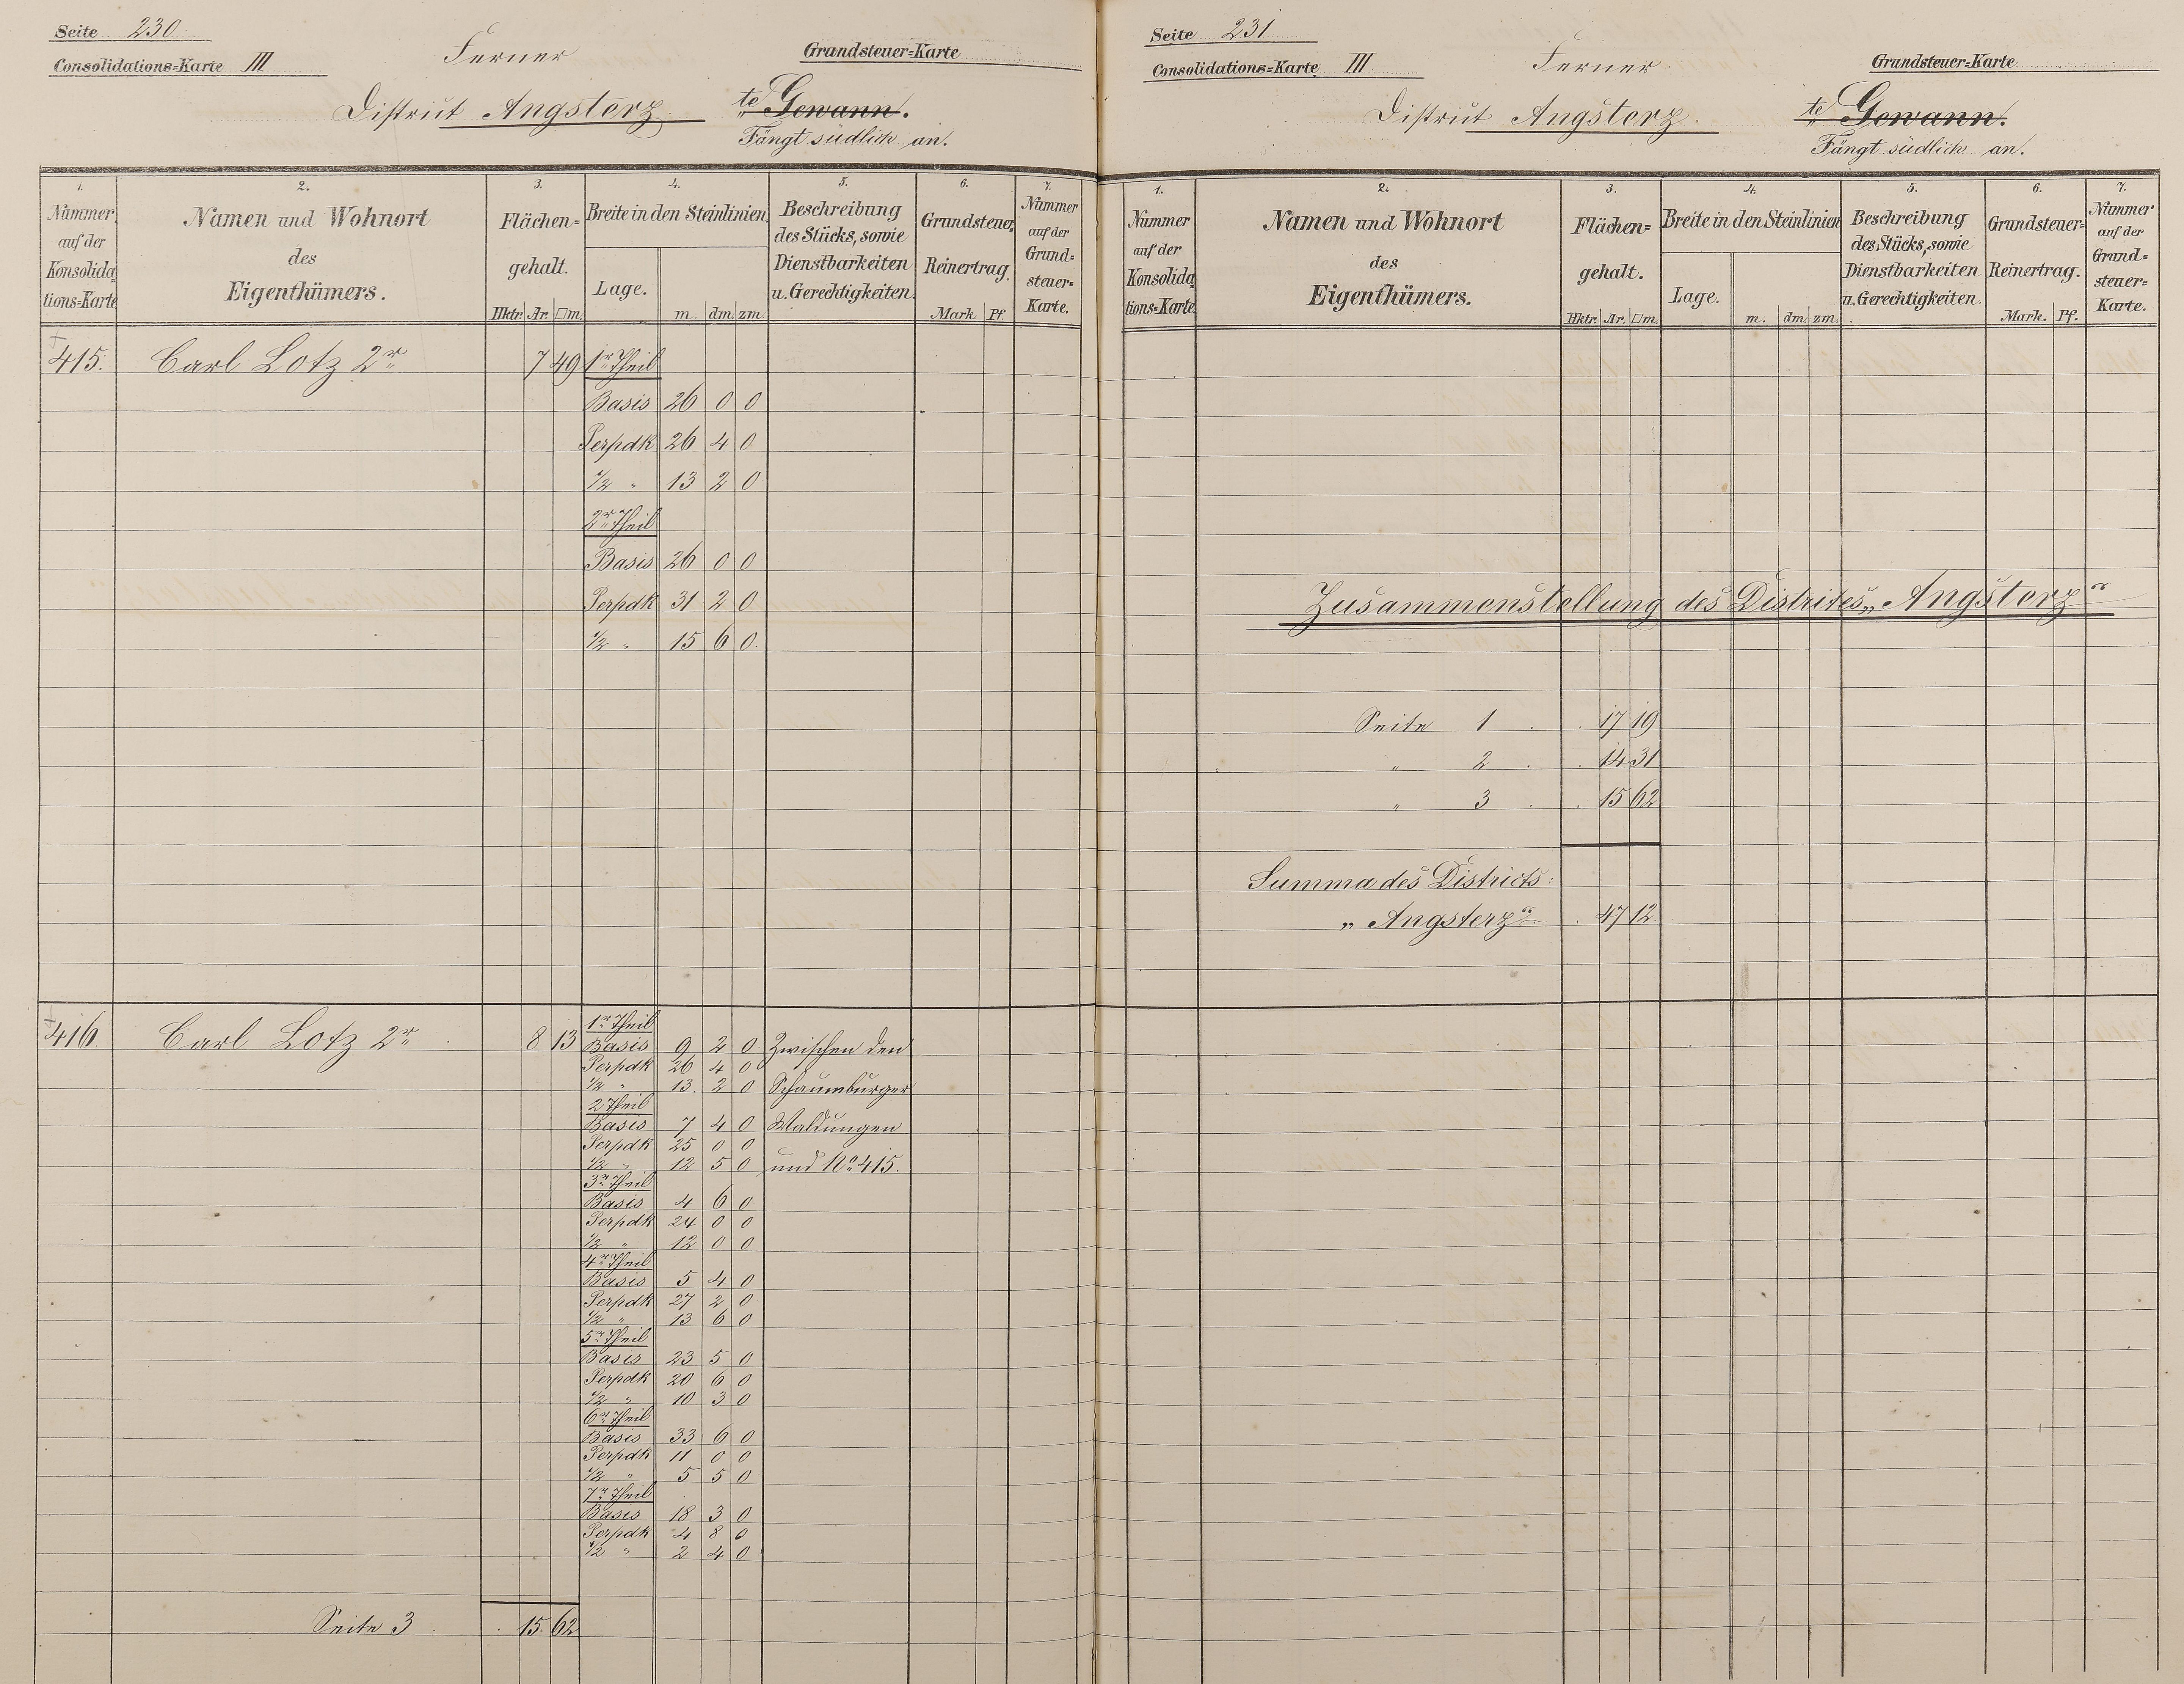 Seite 230
Consolidations=Karte III
Ferner
Grundsteuer=Karte
District Angsterz te Gewann.
Fängt südlich an.
1. 2. 3. 4. 5. 6. 7.
Nummer auf der Konsolidations=Karte
Namen und Wohnort des Eigenthümers.
Flächen=gehalt.
Hktr. Ar. □m.
Breite in den Steinlinien
Lage. m. dm. zm.
Beschreibung des Stücks, sowie Dienstbarkeiten u. Gerechtigkeiten.
Grundsteuer=Reinertrag.
Mark Pf.
Nummer auf der Grund=steuer=Karte.
415. Carl Lotz 2r 7 49 1r Theil
Basis 26 0 0
Perpdk 26 4 0
1/2 " 13 2 0
2r Theil
Basis 26 0 0
Perpdk 31 2 0
1/2 " 15 6 0.
1r Theil
416. Carl Lotz 2r 8 13 Basis 9 2 0 Zwischen den
Perpdk 26 4 0
1/2 " 13 2 0 Schaumburger
2 Theil
Basis 7 4 0 Waldungen
Perpdk 25 0 0
1/2 " 12 5 0 und No 415.
3r Theil
Basis 4 6 0
Perpdk 24 0 0
1/2 " 12 0 0
4r Theil
Basis 5 4 0
Perpdk 27 2 0
1/2 " 13 6 0
5r Theil
Basis 23 5 0
Perpdk 20 6 0
1/2 " 10 3 0
6r Theil
Basis 33 6 0
Perpdk 11 0 0
1/2 " 5 5 0
7r Theil
Basis 18 3 0
Perpdk 4 8 0
1/2 " 2 4 0
Seite 3 . 15 62
Seite 231
Consolidations=Karte III
Ferner
Grundsteuer=Karte
District Angsterz. te Gewann.
Fängt südlich an.
1. 2. 3. 4. 5. 6. 7.
Nummer auf der Konsolidations=Karte
Namen und Wohnort des Eigenthümers.
Flächen=gehalt.
Hktr. Ar. □m.
Breite in den Steinlinien
Lage. m. dm. zm.
Beschreibung des Stücks, sowie Dienstbarkeiten u. Gerechtigkeiten.
Grundsteuer=Reinertrag.
Mark. Pf.
Nummer auf der Grund=steuer=Karte.
Zusammenstellung des Districtes „Angsterz“
Seite 1 . . 17 19
" 2 . . 14 31
" 3 . . 15 62
Summa des Districts:
„Angsterz“ . 47 12.